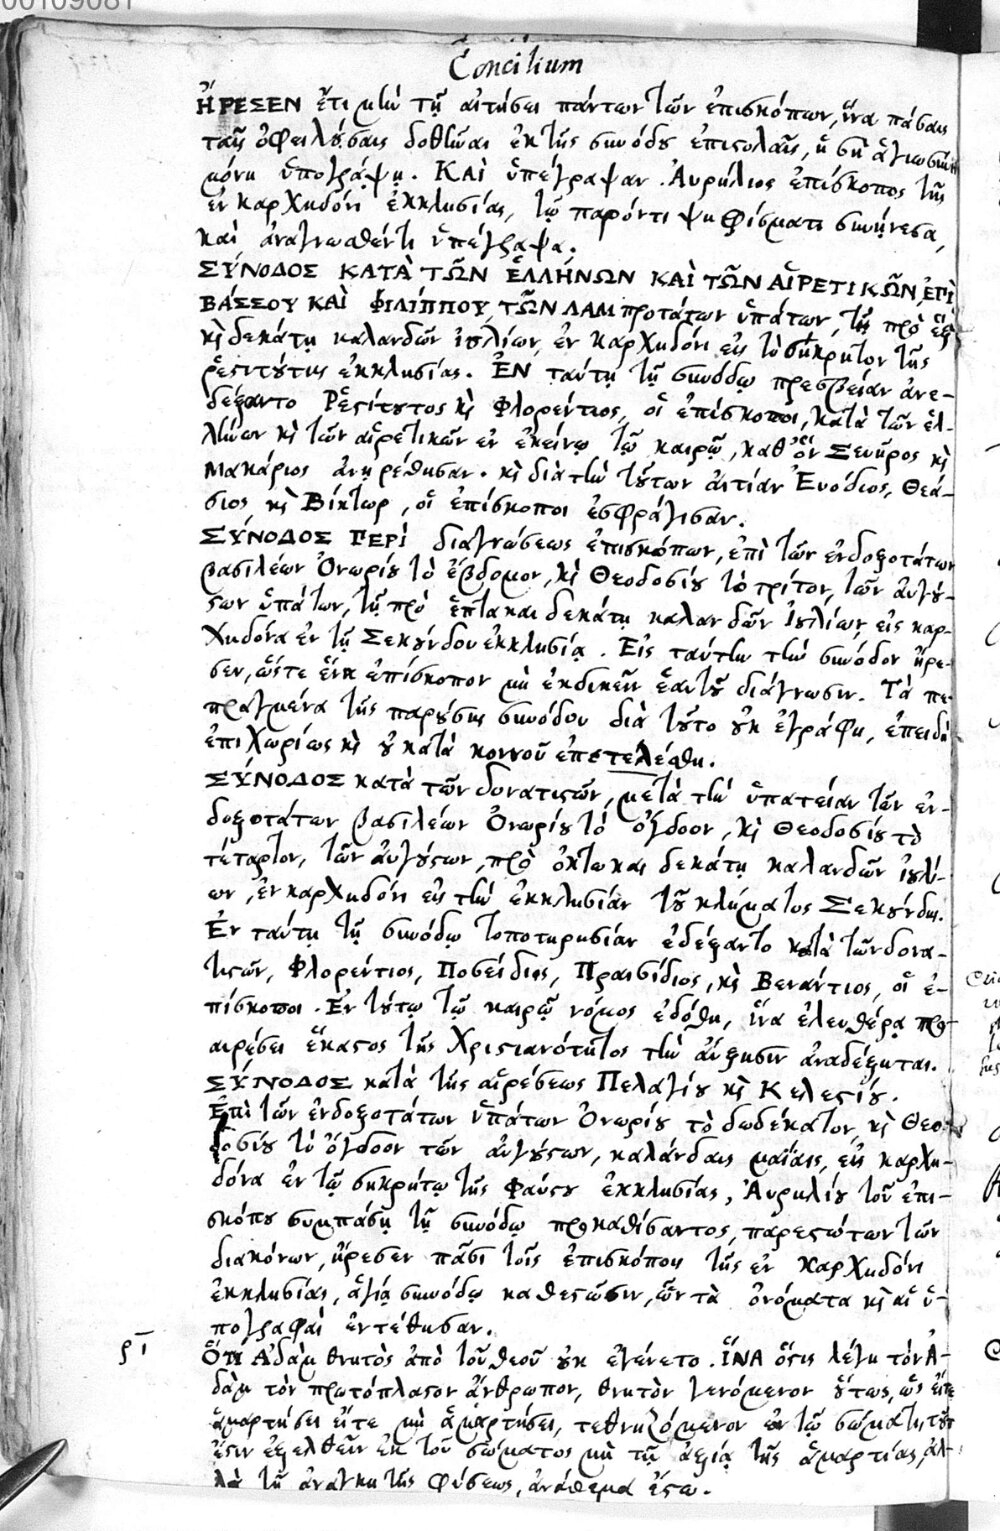 00109081
Concilium
ἬΡΕΣΕΝ ἔτι μὴν τῇ αἰτήσει πάντων τῶν ἐπισκόπων, ἵνα πάσαις
ταῖς ὀφειλούσαις δοθῆναι ἐκ τῆς συνόδου ἐπιστολαῖς, ἡ σὴ ἁγιωσύνη
μόνη ὑπογράψῃ. ΚΑῚ ὑπέγραψαν. Αὐρήλιος ἐπίσκοπος τῆς
ἐν καρχηδόνι ἐκκλησίας, τῷ παρόντι ψηφίσματι συνῄνεσα,
καὶ ἀναγνωσθέντι ὑπέγραψα.
ΣΎΝΟΔΟΣ ΚΑΤᾺ ΤΩ͂Ν ἙΛΛΉΝΩΝ ΚΑῚ ΤΩ͂Ν ΑἹΡΕΤΙΚΩ͂Ν, ἘΠῚ
ΒΆΣΣΟΥ ΚΑῚ ΦΙΛΊΠΠΟΥ, ΤΩ͂Ν ΛΑΜπροτάτων ὑπάτων, τῇ πρὸ ἓξ
κὶ δεκάτῃ καλανδῶν ἰουλίων, ἐν καρχηδόνι εἰς τὸ σήκρητον τῆς
ῥεστιτούτης ἐκκλησίας. ἘΝ ταύτῃ τῇ συνόδῳ πρεσβείαν ἀνε-
δέξαντο Ῥεστίτουτος κὶ Φλορέντιος, οἱ ἐπίσκοποι, κατὰ τῶν ἑλ-
λήνων κὶ τῶν αἱρετικῶν ἐν ἐκείνῳ τῷ καιρῷ, καθ' ὃν Σευῆρος κὶ
Μακάριος ἀνῃρέθησαν. κὶ διὰ τὴν τούτων αἰτίαν Ἐυόδιος, Θεά-
σιος κὶ Βίκτωρ, οἱ ἐπίσκοποι ἐσφράγισαν.
ΣΎΝΟΔΟΣ ΠΕΡῚ διαγνώσεως ἐπισκόπων, ἐπὶ τῶν ἐνδοξοτάτων
βασιλέων Ὀνωρίου τὸ ἕβδομον, κὶ Θεοδοσίου τὸ τρίτον, τῶν αὐγού-
στων ὑπάτων, τῇ πρὸ ἑπτακαιδεκάτῃ καλανδῶν Ἰουλίων, εἰς καρ-
χηδόνα ἐν τῇ Σεκούνδου ἐκκλησίᾳ. Εἰς ταύτην τὴν σύνοδον ἤρε-
σεν, ὥστε ἕνα ἐπίσκοπον μὴ ἐκδικεῖν ἑαυτοῦ διάγνωσιν. Τὰ πε-
πραγμένα τῆς παρούσης συνόδου διὰ τοῦτο οὐκ ἐγράφη, ἐπειδὴ
ἐπιχωρίως κὶ οὐ κατὰ κοινοῦ ἐπετελέσθη.
ΣΎΝΟΔΟΣ κατὰ τῶν δονατιστῶν, μετὰ τὴν ὑπατείαν τῶν ἐν-
δοξοτάτων βασιλέων Ὀνωρίου τὸ ὄγδοον, κὶ Θεοδοσίου τὸ
τέταρτον, τῶν αὐγούστων, πρὸ ὀκτωκαιδεκάτῃ καλανδῶν ἰουλί-
ων, ἐν καρχηδόνι εἰς τὴν ἐκκλησίαν τοῦ κλήματος Σεκούνδης.
Ἐν ταύτῃ τῇ συνόδῳ τοποτηρησίαν ἐδέξαντο κατὰ τῶν δονα-
τιστῶν, Φλορέντιος, Ποσείδιος, Πραισίδιος, κὶ Βενάντιος, οἱ ἐ-
πίσκοποι. Ἐν τούτῳ τῷ καιρῷ νόμος ἐδόθη, ἵνα ἐλευθέρᾳ προ-
αιρέσει ἕκαστος τῆς Χριστιανότητος τὴν αὔξησιν ἀναδέξηται.
ΣΎΝΟΔΟΣ κατὰ τῆς αἱρέσεως Πελαγίου κὶ Κελεστίου.
Ἐπὶ τῶν ἐνδοξοτάτων ὑπάτων Ὀνωρίου τὸ δωδέκατον, κὶ Θεο-
δοσίου τὸ ὄγδοον τῶν αὐγούστων, καλάνδαις μαΐαις, εἰς καρχη-
δόνα ἐν τῷ σηκρήτῳ τῆς Φαύστου ἐκκλησίας, Αὐρηλίου τοῦ ἐπι-
σκόπου συμπάσῃ τῇ συνόδῳ προκαθίσαντος, παρεστώτων τῶν
διακόνων, ἤρεσεν πᾶσι τοῖς ἐπισκόποις τῆς ἐν καρχηδόνι
ἐκκλησίας, ἁγίᾳ συνόδῳ καθεστῶσιν, ὧν τὰ ὀνόματα κὶ αἱ ὑ-
πογραφαὶ ἐντέθησαν.
ρι Ὅτι Ἀδὰμ θνητὸς ἀπὸ τοῦ θεοῦ οὐκ ἐγένετο. ἽΝΑ ὅστις λέγει τὸν Ἀ-
δὰμ τὸν πρωτόπλαστον ἄνθρωπον, θνητὸν γενόμενον οὕτως, ὡς εἴτε
ἁμαρτήσει εἴτε μὴ ἁμαρτήσει, τεθνηξόμενον ἐν τῷ σώματι, τοῦτ'
ἔστιν ἐξελθεῖν ἐκ τοῦ σώματος μὴ τῇ ἀξίᾳ τῆς ἁμαρτίας, ἀλ-
λὰ τῇ ἀνάγκῃ τῆς φύσεως, ἀνάθεμα ἔστω.